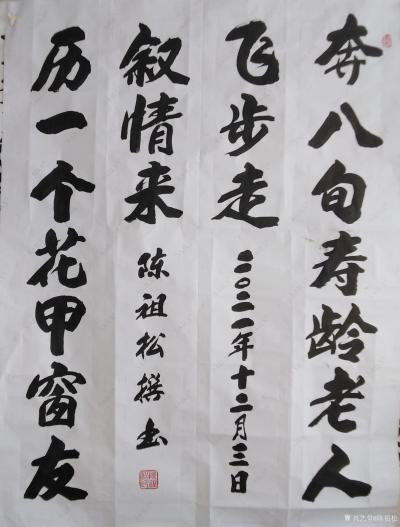 奔八旬寿龄老人
飞步走
二〇二一年十二月三日
历一个花甲窗友
叙情来
陈祖松撰书